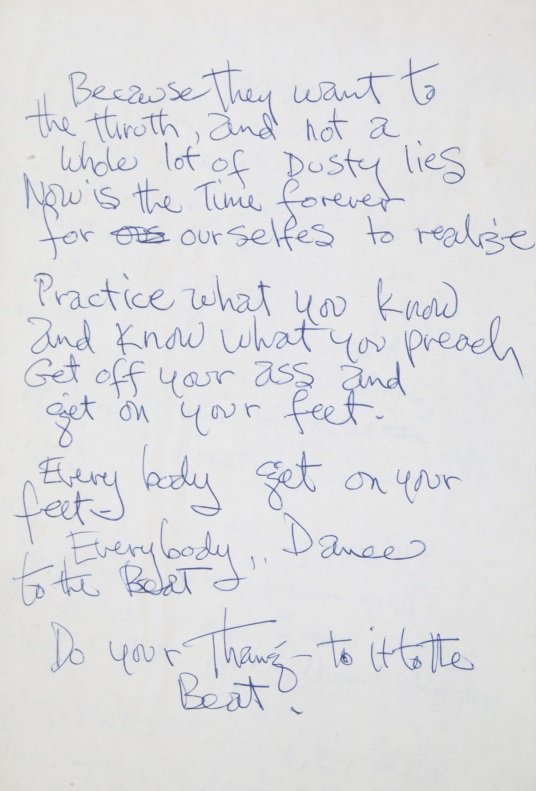 Because they want to
the thruth, and not a
whole lot of Dusty lies
Now is the Time forever
for ourselfes to realize
Practice what you know
and know what you preach
Get off your ass and
get on your feet.
Every body get on your
feet-
Everybody,, Dance
to the Beat
Do your Thang- to it to the
Beat.